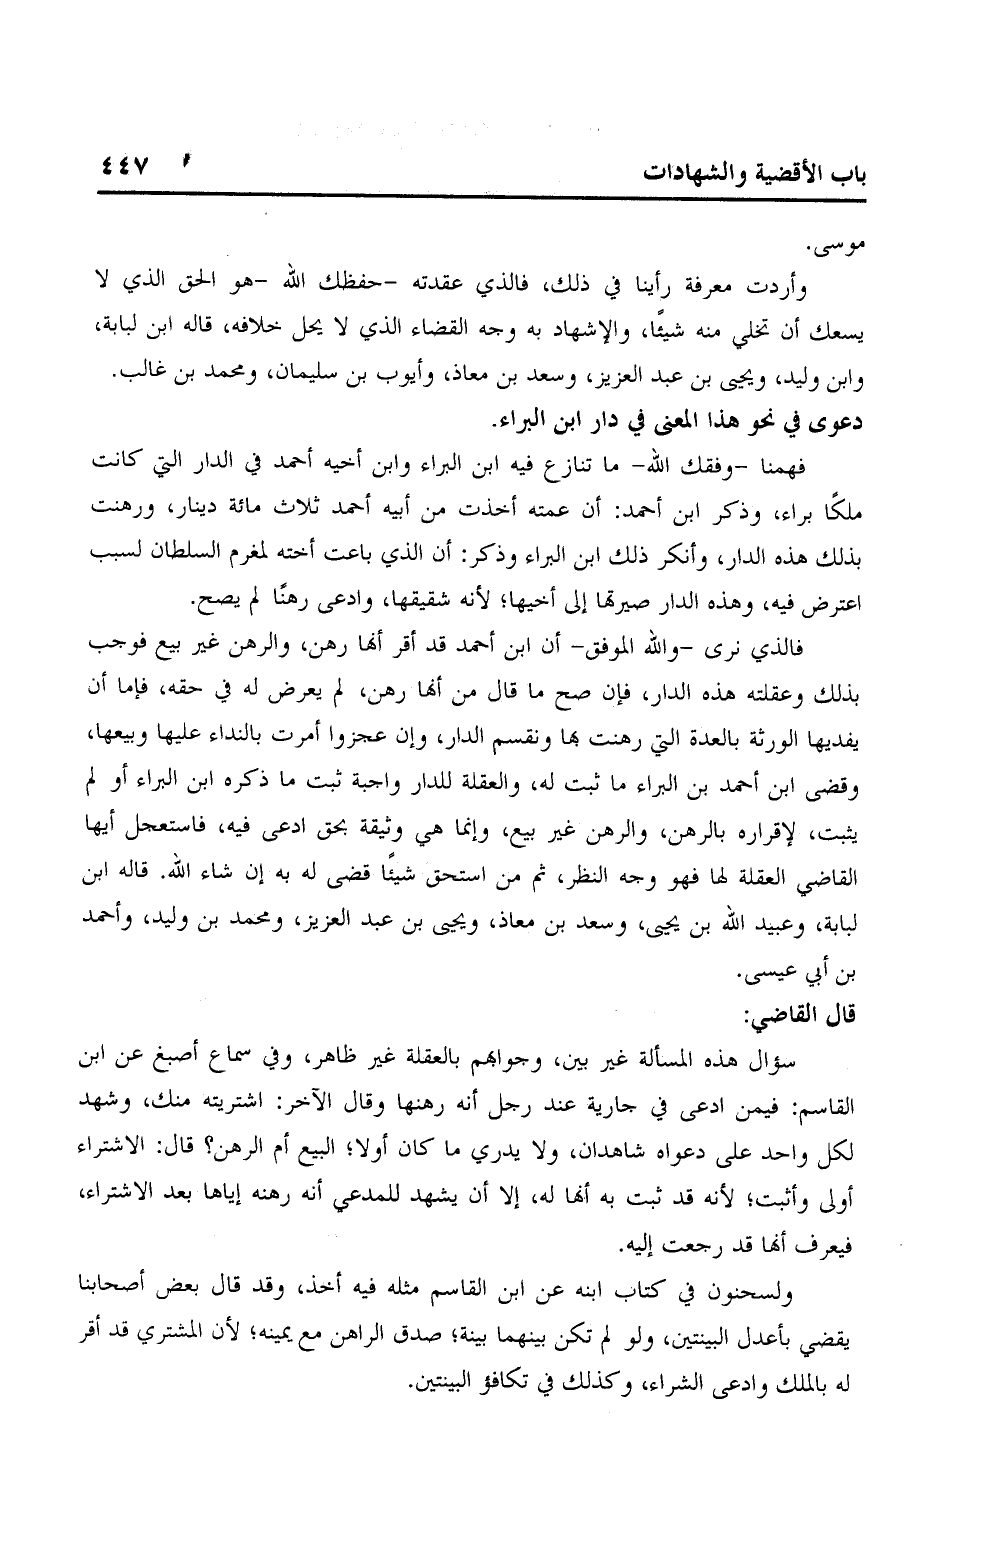 باب الأقضية والشهادات ٤٤٧
موسى.
وأردت معرفة رأينا في ذلك، فالذي عقدته -حفظك الله -هو الحق الذي لا
يسعك أن تخلي منه شيئًا، والإشهاد به وجه القضاء الذي لا يحل خلافه، قاله ابن لبابة،
وابن وليد، ويحيى بن عبد العزيز، وسعد بن معاذ، وأيوب بن سليمان، ومحمد بن غالب.
دعوى في نحو هذا المعنى في دار ابن البراء.
فهمنا -وفقك الله- ما تنازع فيه ابن البراء وابن أخيه أحمد في الدار التي كانت
ملكًا براء، وذكر ابن أحمد: أن عمته أخذت من أبيه أحمد ثلاث مائة دينار، ورهنت
بذلك هذه الدار، وأنكر ذلك ابن البراء وذكر: أن الذي باعت أخته لمغرم السلطان لسبب
اعترض فيه، وهذه الدار صيرتها إلى أخيها؛ لأنه شقيقها، وادعى رهنًا لم يصح.
فالذي نرى -والله الموفق- أن ابن أحمد قد أقر أنها رهن، والرهن غير بيع فوجب
بذلك وعقلته هذه الدار، فإن صح ما قال من أنها رهن، لم يعرض له في حقه، فإما أن
يفديها الورثة بالعدة التي رهنت بها ونقسم الدار، وإن عجزوا أمرت بالنداء عليها وبيعها،
وقضى ابن أحمد بن البراء ما ثبت له، والعقلة للدار واجبة ثبت ما ذكره ابن البراء أو لم
يثبت، لإقراره بالرهن، والرهن غير بيع، وإنما هي وثيقة بحق ادعى فيه، فاستعجل أيها
القاضي العقلة لها فهو وجه النظر، ثم من استحق شيئًا قضى له به إن شاء الله. قاله ابن
لبابة، وعبيد الله بن يحيى، وسعد بن معاذ، ويحيى بن عبد العزيز، ومحمد بن وليد، وأحمد
بن أبي عيسى.
قال القاضي:
سؤال هذه المسألة غير بين، وجوابهم بالعقلة غير ظاهر، وفي سماع أصبغ عن ابن
القاسم: فيمن ادعى في جارية عند رجل أنه رهنها وقال الآخر: اشتريته منك، وشهد
لكل واحد على دعواه شاهدان، ولا يدري ما كان أولا؛ البيع أم الرهن؟ قال: الاشتراء
أولى وأثبت؛ لأنه قد ثبت به أنها له، إلا أن يشهد للمدعي أنه رهنه إياها بعد الاشتراء،
فيعرف أنها قد رجعت إليه.
ولسحنون في كتاب ابنه عن ابن القاسم مثله فيه أخذ، وقد قال بعض أصحابنا
يقضي بأعدل البينتين، ولو لم تكن بينهما بينة؛ صدق الراهن مع يمينه؛ لأن المشتري قد أقر
له بالملك وادعى الشراء، وكذلك في تكافؤ البينتين.